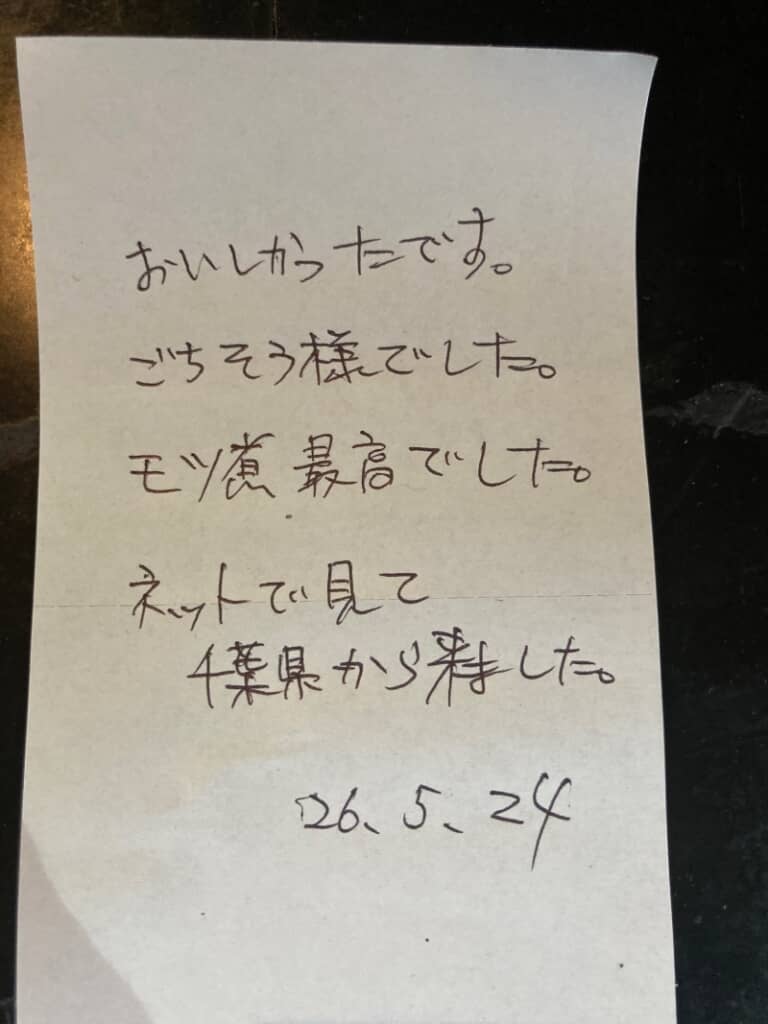 おいしかったです。
ごちそう様でした。
モツ煮 最高でした。
ネットで見て
千葉県から来ました。
'26、5、24